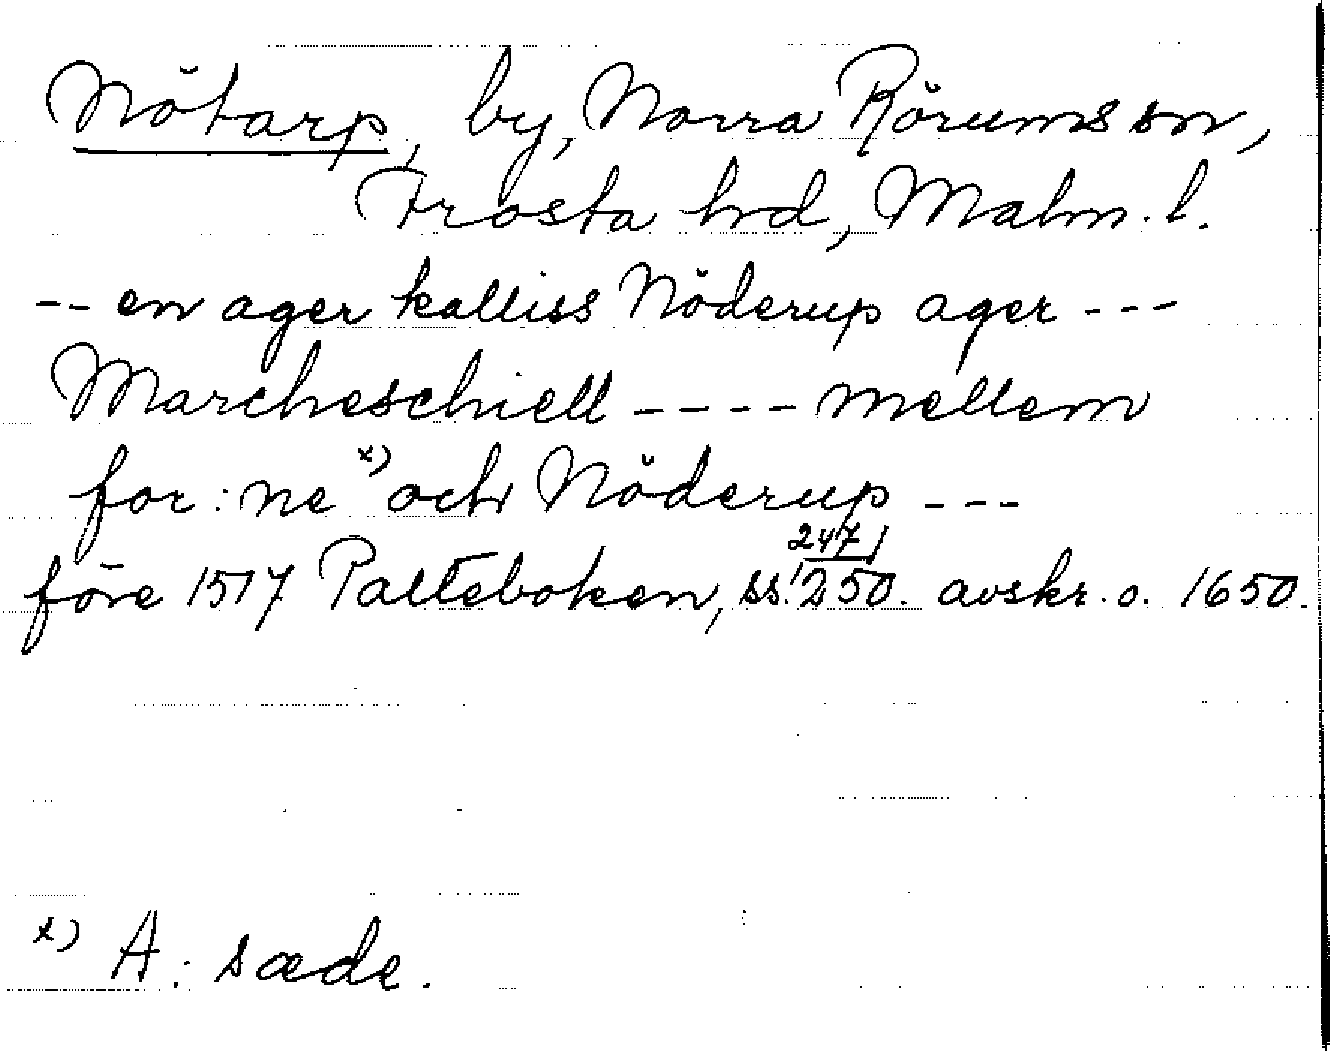 Nötarp, by, Norra Rörums sn,
Frosta hd, Malm. l.
-- en ager kalliss Nöderup ager ---
Marcheschiell ---- mellem
for: ne x) och Nöderup ---
247/
före 1517 Palteboken, ss. 250. avskr. o. 1650.
x) A: sæde.